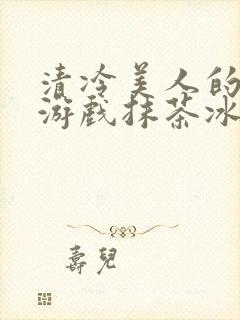 清冷美人的
游戏抹茶冰
壽兒